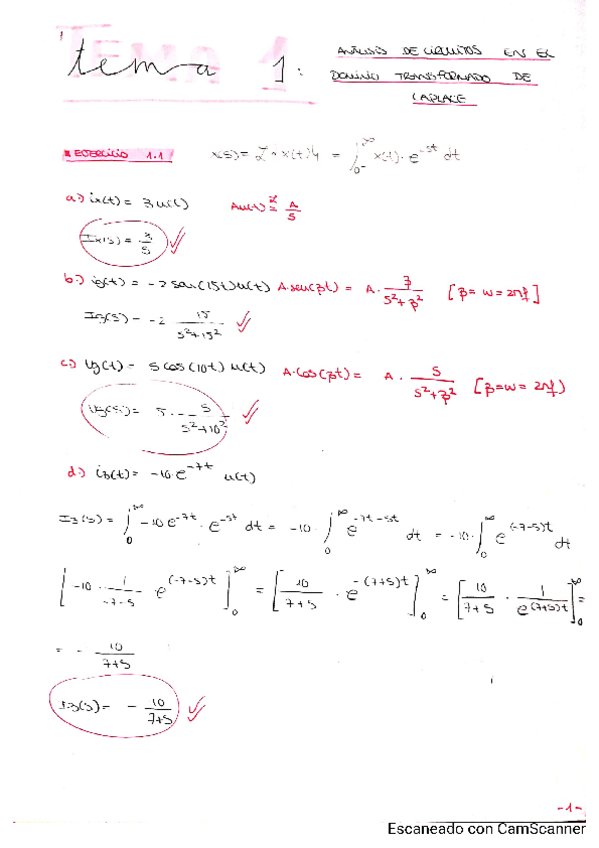 tema 1: ANÁLISIS DE CIRCUITOS EN EL
DOMINIO TRANSFORMADO DE
LAPLACE
EJERCICIO 1.1 X(s) = L{x(t)} = ∫₀-^∞ x(t)·e^-st dt
a.) ix(t) = 3u(t) Au(t) = A/s
Ix(s) = 3/s
b.) ig(t) = -2 sen(15t)u(t) A·sen(βt) = A · β/(s²+β²) [β = w = 2πf]
Ig(s) = -2 15/(s²+15²)
c.) Vg(t) = 5 cos(10t) u(t) A·cos(βt) = A · s/(s²+β²) [β = w = 2πf)
Vg(s) = 5 · s/(s²+10²)
d.) i3(t) = -10·e^-7t u(t)
I3(s) = ∫₀^∞ -10 e^-7t · e^-st dt = -10 · ∫₀^∞ e^-7t-st dt = -10 · ∫₀^∞ e^(-7-s)t dt
[-10 · 1/(-7-s) e^(-7-s)t]₀^∞ = [10/(7+s) · e^-(7+s)t]₀^∞ = [10/(7+s) · 1/e^(7+s)t]₀^∞ =
= - 10/(7+s)
I3(s) = - 10/(7+s)
-1-
Escaneado con CamScanner